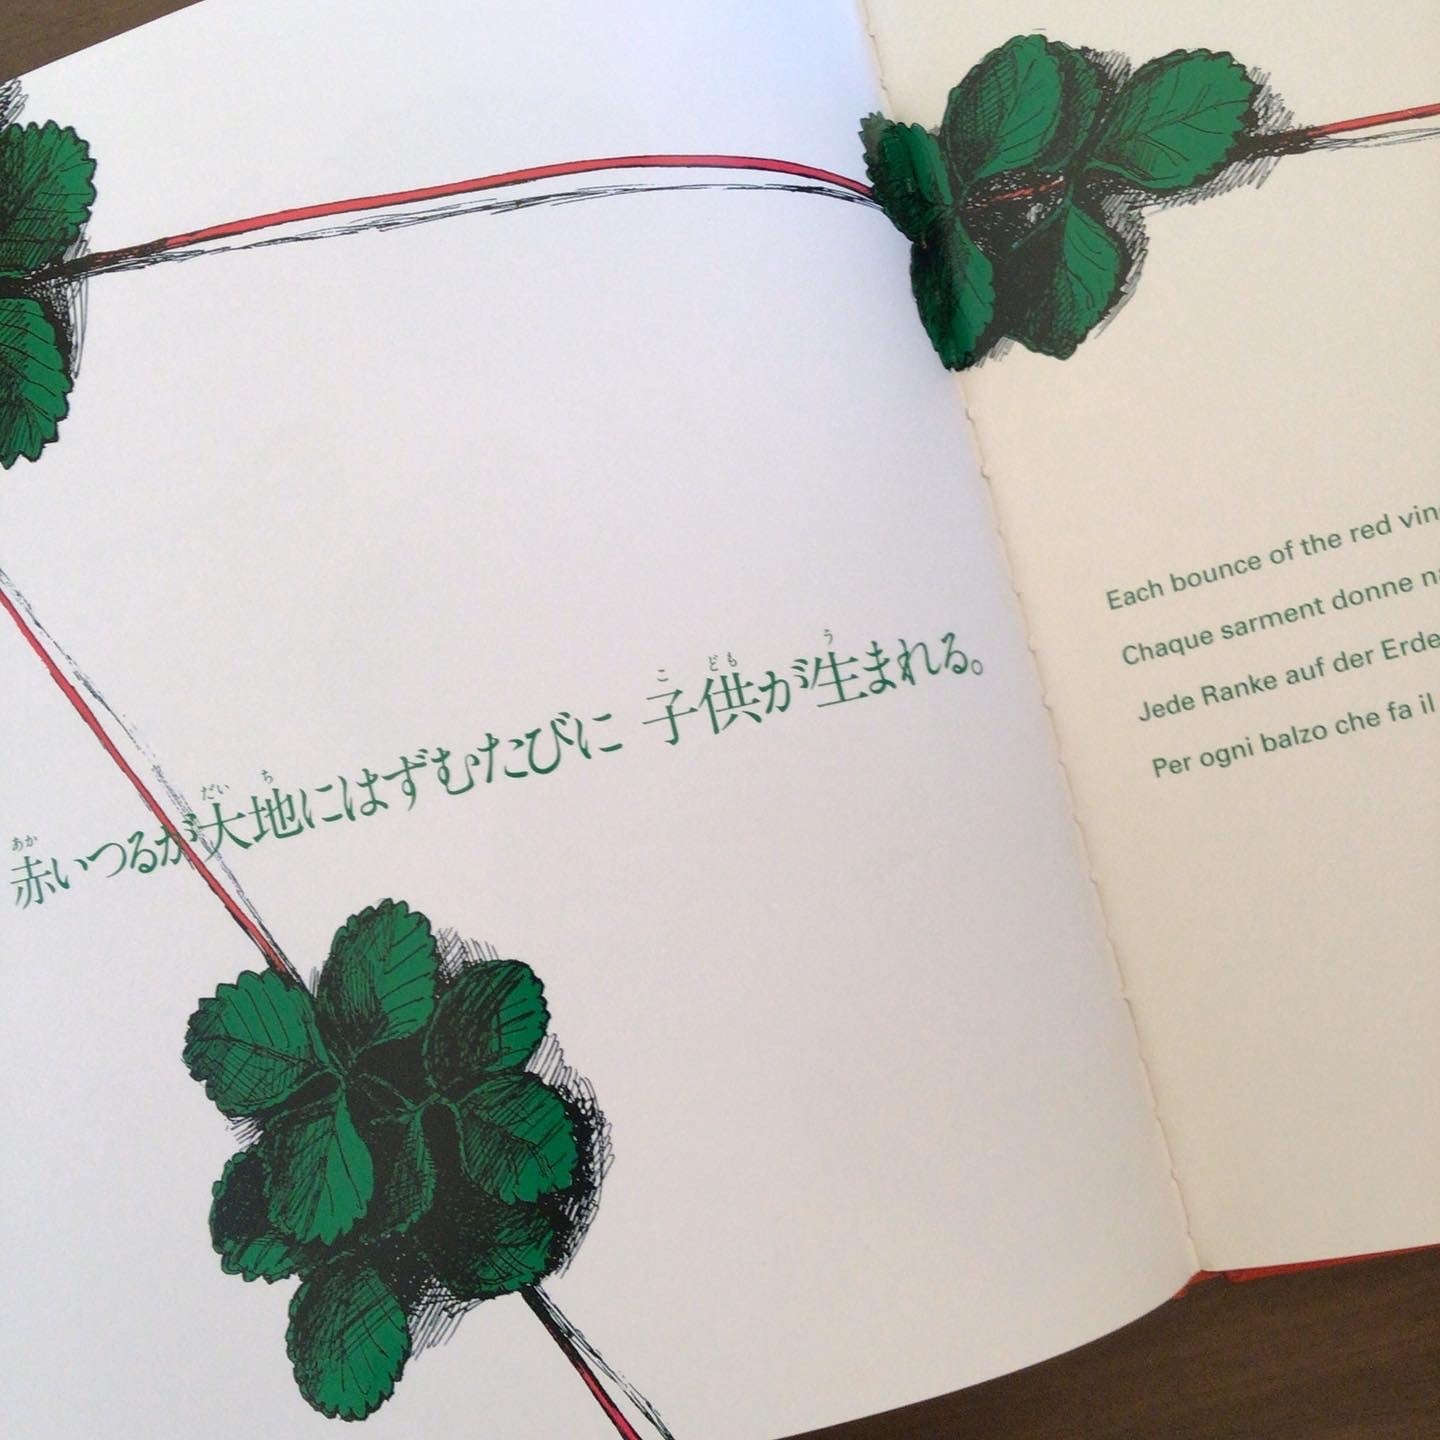 赤いつるが大地にはずむたびに 子供が生まれる。
Each bounce of the red
Chaque sarment donne
Jede Ranke auf der Erde
Per ogni balzo che fa il